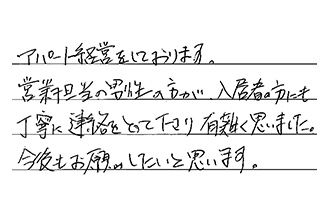 アパート経営をしております。
営業担当の男性の方が、入居者の方にも
丁寧に連絡をとって下さり有難く思いました。
今後もお願いしたいと思います。